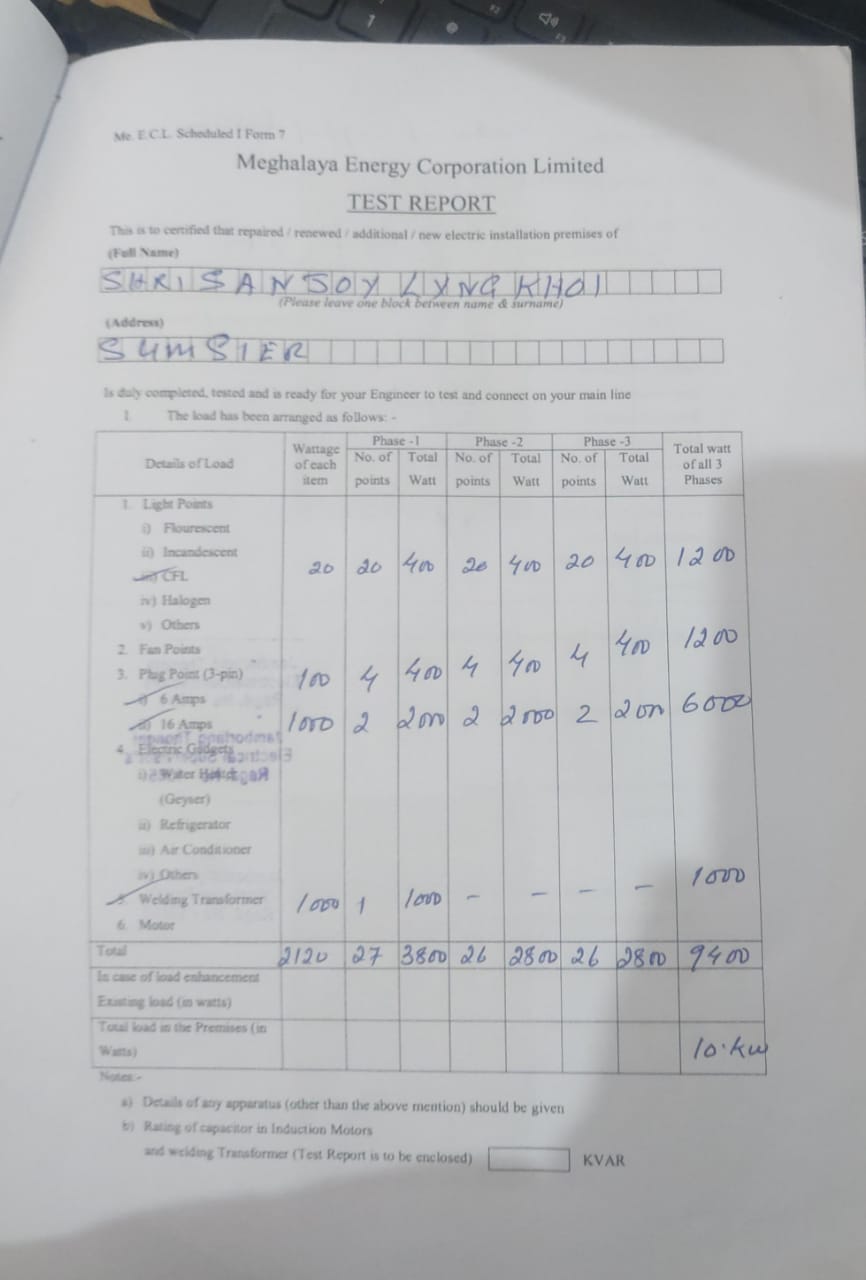 Me. E.C.L. Scheduled I Form 7
Meghalaya Energy Corporation Limited
TEST REPORT
This is to certified that repaired / renewed / additional / new electric installation premises of
(Full Name)
SHRI SANJOY LYNGKHOI
(Please leave one block between name & surname)
(Address)
SUMSIER
Is duly completed, tested and is ready for your Engineer to test and connect on your main line
1. The load has been arranged as follows: -
Details of Load Wattage of each item Phase -1 Phase -2 Phase -3 Total watt of all 3 Phases
No. of points Total Watt No. of points Total Watt No. of points Total Watt
1. Light Points
i) Flourescent
ii) Incandescent
iii) CFL 20 20 400 20 400 20 400 1200
iv) Halogen
v) Others
2. Fan Points
3. Plug Point (3-pin)
i) 6 Amps 100 4 400 4 400 4 400 1200
ii) 16 Amps 1000 2 2000 2 2000 2 2000 6000
4. Electric Gadgets
i) Water
(Geyser)
ii) Refrigerator
iii) Air Conditioner
iv) Others
5. Welding Transformer 1000 1 1000 - - - - 1000
6. Motor
Total 2120 27 3800 26 2800 26 2800 9400
In case of load enhancement
Existing load (in watts)
Total load in the Premises (in
Watts) 10.KW
Notes:-
a) Details of any apparatus (other than the above mention) should be given
b) Rating of capacitor in Induction Motors
and welding Transformer (Test Report is to be enclosed) KVAR